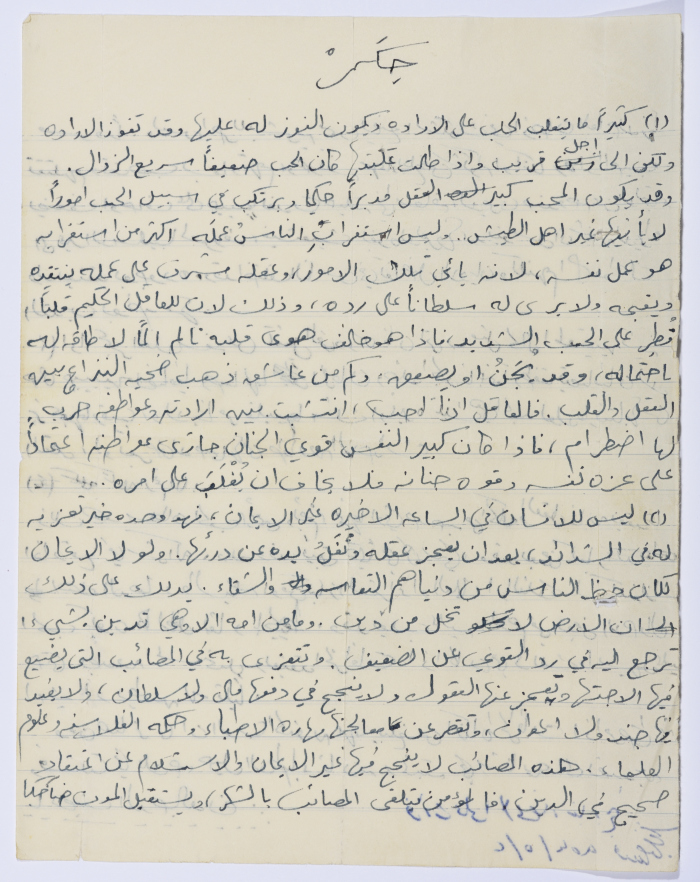 حِكَمْ
(١) كثيراً ما يتغلب الحب على الاراده ويكون الفوز له عليها وقد تفوز الاراده
ولكن الى اجل قريب واذا طالت غلبتها كان الحب ضعيفاً سريع الزوال.
وقد يكون المحب كبير العقل مدبراً حكيما ويرتكب في سبيل الحب اموراً
لا يأتيها غير اهل الطيش.. وليس استغراب الناس عمله اكثر من استغرابه
هو عمل نفسه، لانه يأتي تلك الامور، وعقله مشرف على عمله ينتقده
ويقبحه ولا يرى له سلطاناً على رده، وذلك لان للعاقل الحكيم قلباً
فُطر على الحب الشديد، فاذا هو خالف هوى قلبه تالم الماً لا طاقة له
باحتماله، وقد يُجَنُّ او يصعق، وكم من عاشق ذهب ضحية النزاع بين
العقل والقلب. فالعاقل اذا احب، انتشبت بين ارادته وعواطفه حرب
لها اضطرام، فاذا كان كبير النفس قوي الجنان جازى عواطفه اعتماداً
على عزة نفسه وقوه جنانه فلا يخاف ان يُغْلَبَ على امره.
(٢) ليس للانسان في الساعه الاخيره غير الايمان، فهو وحده خير تعزيه
له في الشدائد، بعد ان يعجز عقله وتُغَلُّ يده عن درئها. ولولا الايمان
لكان حظ الناس من دنياهم التعاسه والشقاء. يدلك على ذلك
ان الارض لا تخل من دين. وما من امه الا وهي تدين بشيء
ترجع اليه في رد القوي عن الضعيف. وتتعزى به في المصائب التي يضيع
فيها الاحتها وتعجز عنها العقول ولا ينجح في دفعها مال ولا سلطان، ولا يفيد
فيها جند ولا اعوان، وتقصر عن معالجتها مهارة الاطباء وحكمه الفلاسفه وعلوم
العلماء. هذه المصائب لا ينجح فيها غير الايمان والاستسلام عن اعتقاد
صحيح في الدين، فالمؤمن يتلقى المصائب بالشكر، ويستقبل الموت ضاحكا